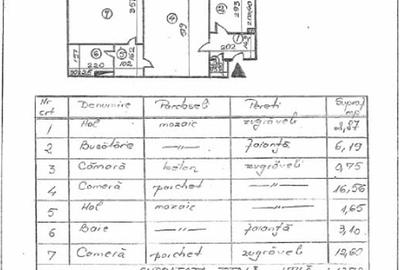 7
357
4
293
210/60
1
202
6
5
220
Nr crt Denumire Pardoseli Pereti Supraf mp
1 Hol mozaic zugrăveli
2 Bucătărie —"— faianță 6,19
3 Cămară beton zugrăveli 0,75
4 Cameră parchet —"— 16,56
5 Hol mozaic —"— 1,65
6 Baie —"— faianță 3,10
7 Cameră parchet zugrăveli 12,60